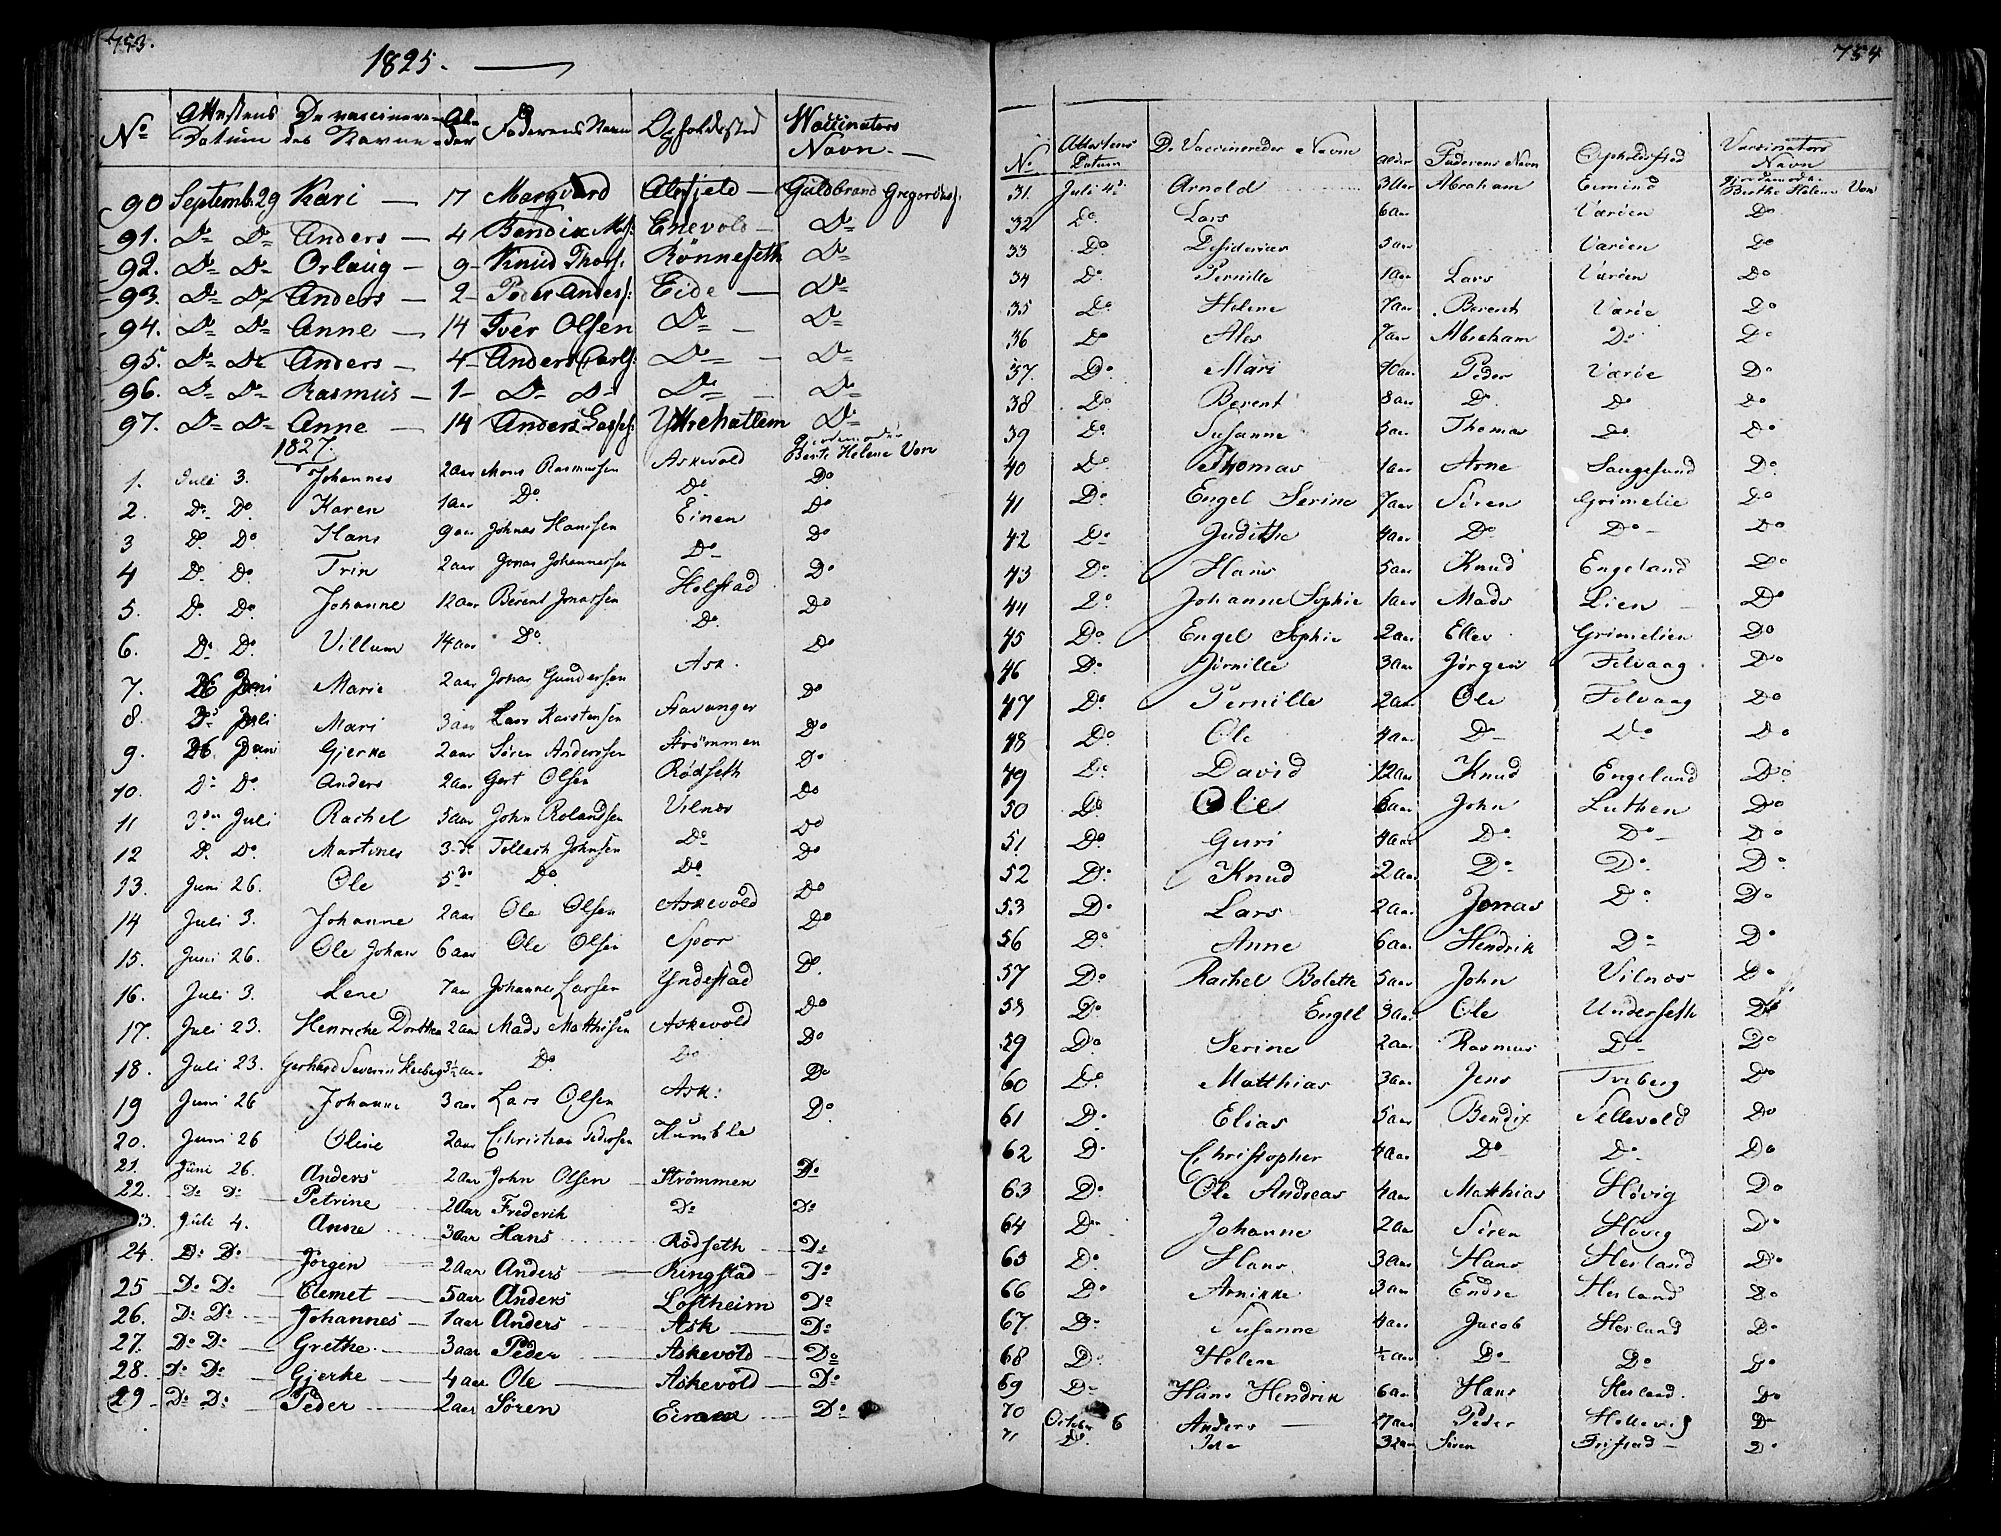 753.
1825.
No Attestens Datum De vaccinere- des Navne Al- der Faderens Navn Opholdssted Vaccinators Navn
90 Septemb. 29 Kari 17 Marqvard Alsfjeld Guldbrand Gregorses:
91. Do Do Anders 4 Bendix Enevold Do
92. Do Do Orlaug 9 Knud Thors: Rönneseth Do
93. Do Do Anders 2 Peder Anders: Eide Do
94. Do Do Anne 14 Iver Olsen Do Do
95. Do Do Anders 4 Anders Carls: Do Do
96. Do Do Rasmus 1 Do Do Do Do
97. Do Do Anne 14 Anders Lasses: Yttrehatlem Do
1827.
1. Juli 3. Johannes 2 aar Mons Rasmussen Askevold Giordemoder Berte Helene Von Do
2. Do Do Karen 1 aar Do Do Do
3 Do Do Hans 9 aar Johnas Hanssen Einen Do
4 Do Do Trin 2 aar Jonas Johannessen Do Do
5. Do Do Johanne 12 aar Berent Jonassen Holstad Do
6. Do Do Villum 14 aar Do Do Do
7. 26 Juni Marie 2 aar Johas Gundersen Ask. Do
8. 3 Juli Mari 3 aar Lars Karstensen Aavanger Do
9. 26. Juni Gjerke 2 aar Sören Anderssen Strömmen Do
10. Do Do Anders 2 aar Gert Olsen Rödseth Do
11 3die Juli Rachel 5 aar John Rolandsen Vilnes Do
12 Do Do Martines 3 Do Tollach Johnsen Do Do
13. Juni 26. Ole 5 Do Do Do Do
14 Juli 3. Johanne 2 aar Ole Olsen Askevold Do
15. Juni 26. Ole Johan 6 aar Ole Olsen Spor Do
16. Juli 3. Lene 7 aar Johannes Larsen Yndestad Do
17. Juli 23. Henricke Dorthea 2 aar Mads Matthisen Askevold Do
18. Juli 23. Gerhard Severin 3½ aar Do Do Do
19 Juni 26 Johanne 3 aar Lars Olsen Ask: Do
20. Juni 26 Oline 2 aar Christian Pedersen Kumble Do
21. Juni 26. Anders 2 aar John Olsen Strömmen Do
22. Do Do Petrine 2 aar Frederik Do Do
3. Juli 4. Anne 3 aar Hans Rödseth Do
24. Do Do Jörgen 2 aar Anders Ringstad Do
25 Do Do Clemet 5 aar Anders Löstheim Do
26. Do Do Johannes 1 aar Anders Ask Do
27. Do Do Grethe 3 aar Peder Askevold Do
28. Do Do Gjerke 4 aar Ole Askevold Do
29 Do Do Peder 2 aar Sören Einen Do
754
No Attestens Datum De Vaccineredes Navn Alder Faderens Navn Opholdssted Vaccinators Navn
31. Juli 4. Arnold 3 aar Abraham Ermind Giordemoder Berthe Helene Von
32 Do Lars 6 aar Værien Do
33 Do Desiderius 3 aar Varien Do
34 Do Pernille 1 aar Lars Værien Do
35 Do Helene 7 aar Berent Værie Do
36 Do Ales 7 aar Abraham Do Do
37. Do Mari 10 aar Peder Værie Do
38 Do Berent 8 aar Do Do Do
39 Do Susanne 5 aar Thomas Do Do
40 Do Thomas 1 aar Arne Saugesund Do
41 Do Engel Serine 7 aar Sören Grimelie Do
42 Do Judithe 4 aar Do Do Do
43 Do Hans 5 aar Knud Engeland Do
44 Do Johanne Sophie 1 aar Mads Lien Do
45 Do Engel Sophie 2 aar Eller Grimelien Do
46 Do Jörnille 3 aar Jörgen Felvaag Do
47 Do Pernille 2 aar Ole Felvaag Do
48 Do Ole 4 aar Do Do Do
49 Do David 12 aar Knud Engeland Do
50 Do Ole 6 aar John Luthen Do
51. Do Guri 4 aar Do Do Do
52 Do Knud 2 aar Do Do Do
53 Do Lars 2 aar Jonas Do Do
56 Do Anne 6 aar Hendrik Do Do
57 Do Rachel Bolette 5 aar John Vilnes Do
58 Do Engel 3 aar Ole Underseth Do
59 Do Serine 2 aar Rasmus Do Do
60 Do Matthias 3 aar Jens Tviberg Do
61 Do Elias 5 aar Bendix Sellevold Do
62 Do Christopher 4 aar Do Do Do
63 Do Ole Andreas 4 aar Matthias Hövig Do
64 Do Johanne 2 aar Sören Hövig Do
65 Do Hans 3 aar Hans Herland Do
66 Do Annikke 3 aar Endre Herland Do
67. Do Susanne 4 aar Jacob Herland Do
68 Do Helene ½ aar Do Do Do
69 Do Hans Hendrik 6 aar Hans Herland. Do
70 October 6 Anders 27 aar Peder Hellevig Do
71 Do 32 aar Sören Fristad Do